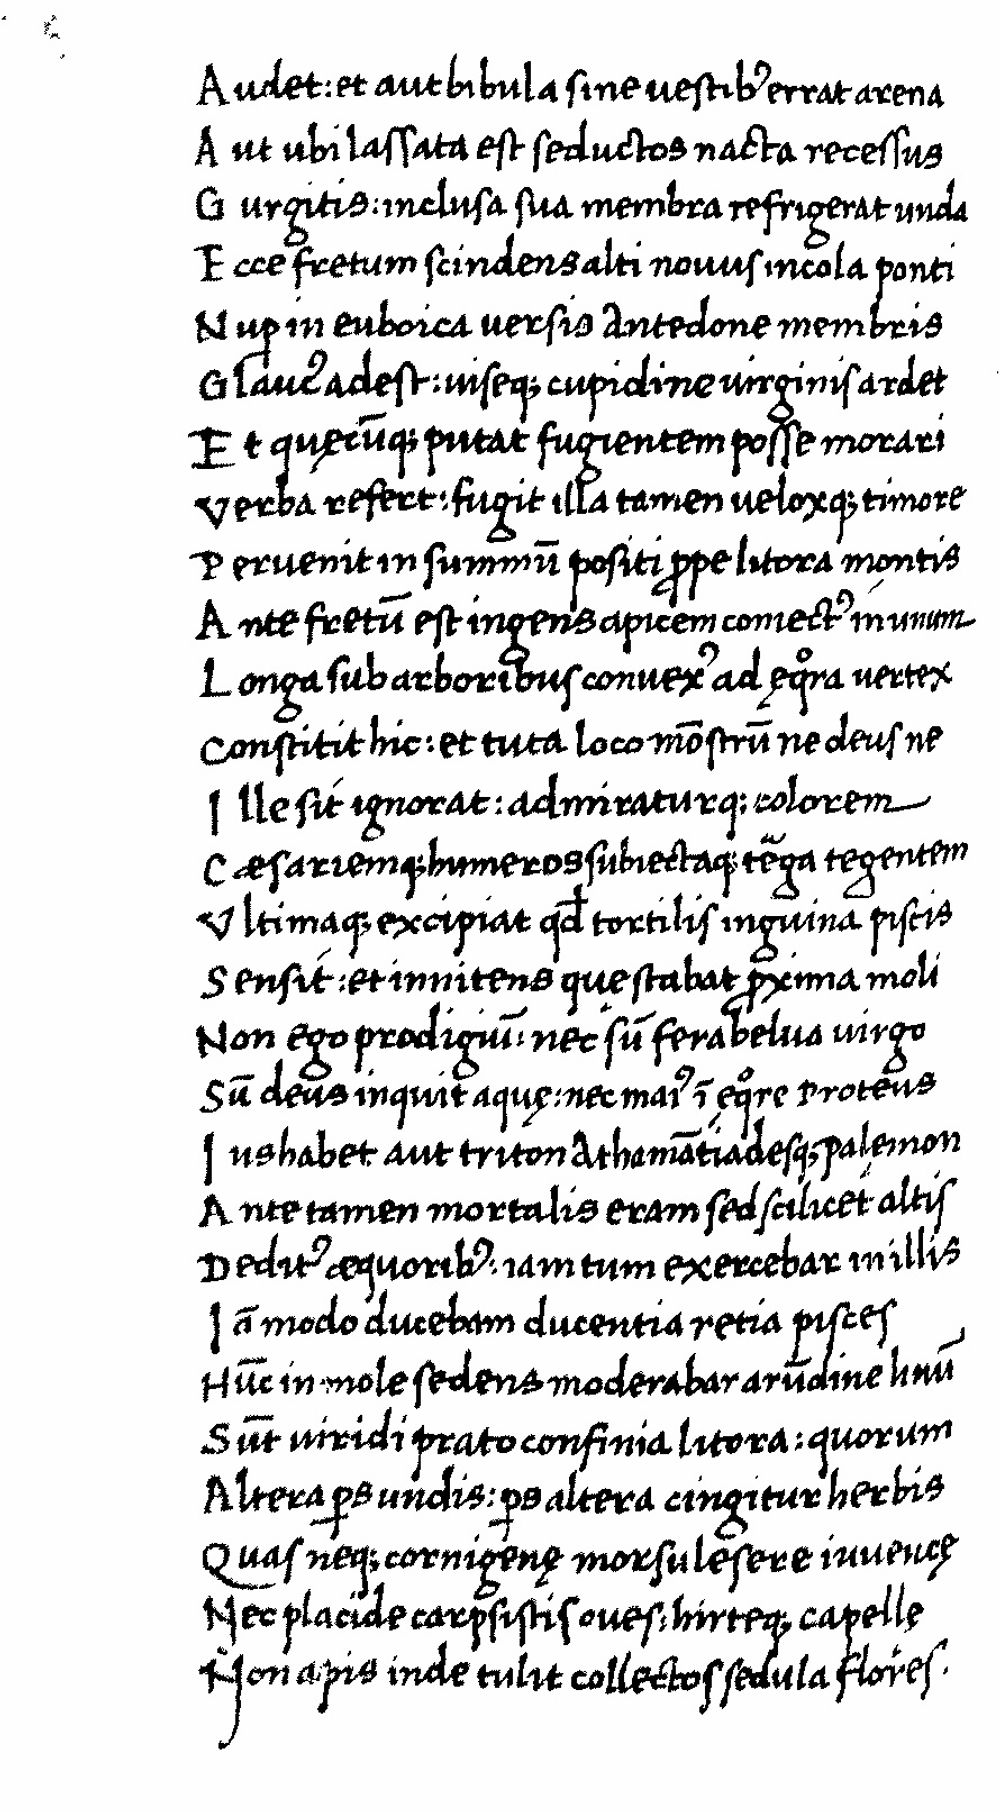 Audet: et aut bibula sine uestibꝰ errat arena
Aut ubi lassata est seductos nacta recessus
Gurgitis: inclusa sua membra refrigerat unda
Ecce fretum scindens alti nouus incola ponti
Nuꝑ in euboica versis Antedone membris
Glaucꝰ adest: uiseqꝫ cupidine uirginis ardet
Et quęcūqꝫ putat fugientem posse morari
Verba refert: fugit illa tamen ueloxqꝫ timore
Peruenit in summū positi ꝓpe litora montis
Ante fretū est ingens apicem coniectꝰ in unum
Longa sub arboribus conuexꝰ ad ęqͦra vertex
Constitit hic: et tuta loco mōstrū ne deus ne
Ille sit ignorat: admiraturqꝫ colorem
Cæsariemqꝫ humeros subiectaqꝫ t̄ga tegentem
Vltimaqꝫ excipiat qđ tortilis inguina piscis
Sensit: et innitens que stabat ꝓxima moli
Non ego prodigiū: nec sū fera belua uirgo
Sū deus inquit aquę: nec maiꝰ ī ęqͦre Proteus
Ius habet aut triton Athamātiadesqꝫ palemon
Ante tamen mortalis eram sed scilicet altis
Deditꝰ æquoribꝰ: iam tum exercebar in illis
Iā modo ducebam ducentia retia pisces
Nūc in mole sedens moderabar arūdine linū
Sūt uiridi prato confinia litora: quorum
Altera ꝑs undis: ꝑs altera cingitur herbis
Quas neqꝫ cornigenę morsu lesere iuuencę
Nec placide carpsistis oues: hirteqꝫ capellę
Non apis inde tulit collectos sedula flores.